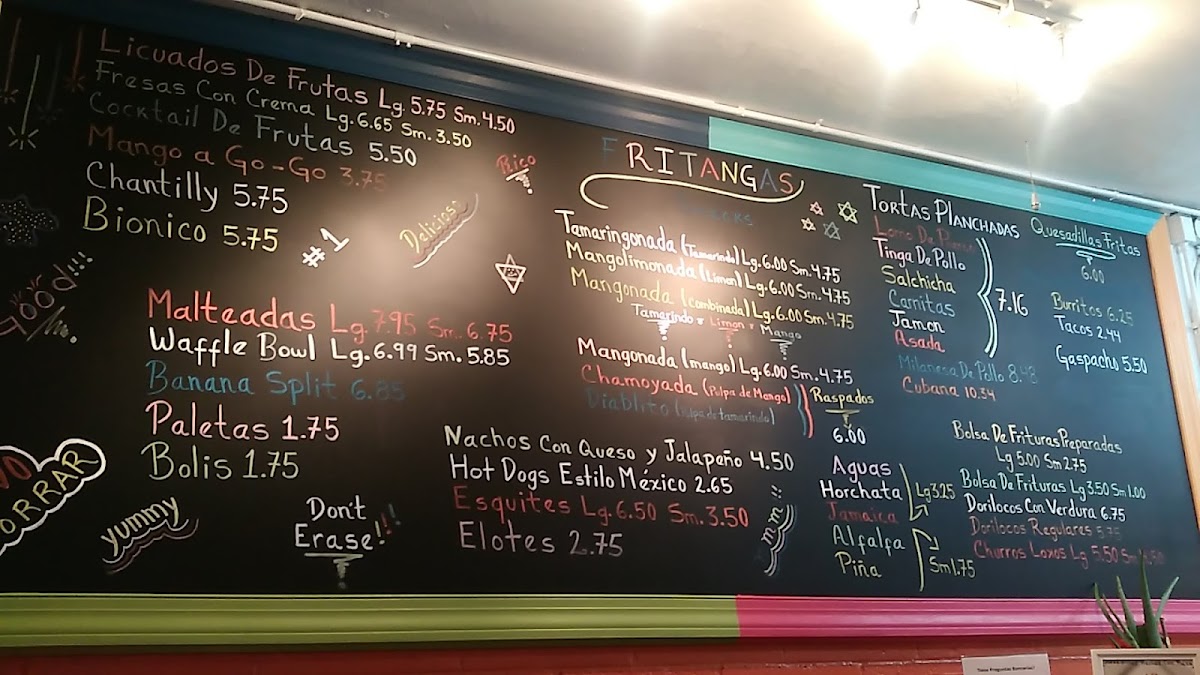 Licuados De Frutas Lg. 5.75 Sm. 4.50
Fresas Con Crema Lg. 6.65 Sm. 3.50
Cocktail De Frutas 5.50
Mango a Go-Go 3.75
Chantilly 5.75
Bionico 5.75
#1
Rico
Good!!!
Malteadas Lg. 7.95 Sm. 6.75
Waffle Bowl Lg. 6.99 Sm. 5.85
Banana Split 6.85
Paletas 1.75
Bolis 1.75
NO
BORRAR
yummy
Don't
Erase!!!
FRITANGAS
Tamaringonada (Tamarindo) Lg. 6.00 Sm. 4.75
Mangolimonada (Limon) Lg. 6.00 Sm. 4.75
Mangonada (combinada) Lg. 6.00 Sm. 4.75
Tamarindo Limon Mango
Mangonada (mango) Lg. 6.00 Sm. 4.75
Chamoyada (Pulpa de Mango)
Diablito (Pulpa de tamarindo)
Raspados
6.00
Nachos Con Queso y Jalapeño 4.50
Hot Dogs Estilo México 2.65
Esquites Lg. 6.50 Sm. 3.50
Elotes 2.75
mm!!
TORTAS PLANCHADAS
Lomo De
Tinga De Pollo
Salchicha
Carnitas
Jamon
Asada
7.16
Milanesa De Pollo 8.48
Cubana 10.34
Quesadillas Fritas
6.00
Burritos 6.25
Tacos 2.44
Gaspacho 5.50
Aguas
Horchata
Jamaica
Alfalfa
Piña
Lg 3.25
Sm 1.75
Bolsa De Frituras Preparadas
Lg 5.00 Sm 2.75
Bolsa De Frituras Lg 3.50 Sm 1.00
Dorilocos Con Verdura 6.75
Dorilocos Regulares 5.75
Churros Locos Lg 5.50 Sm